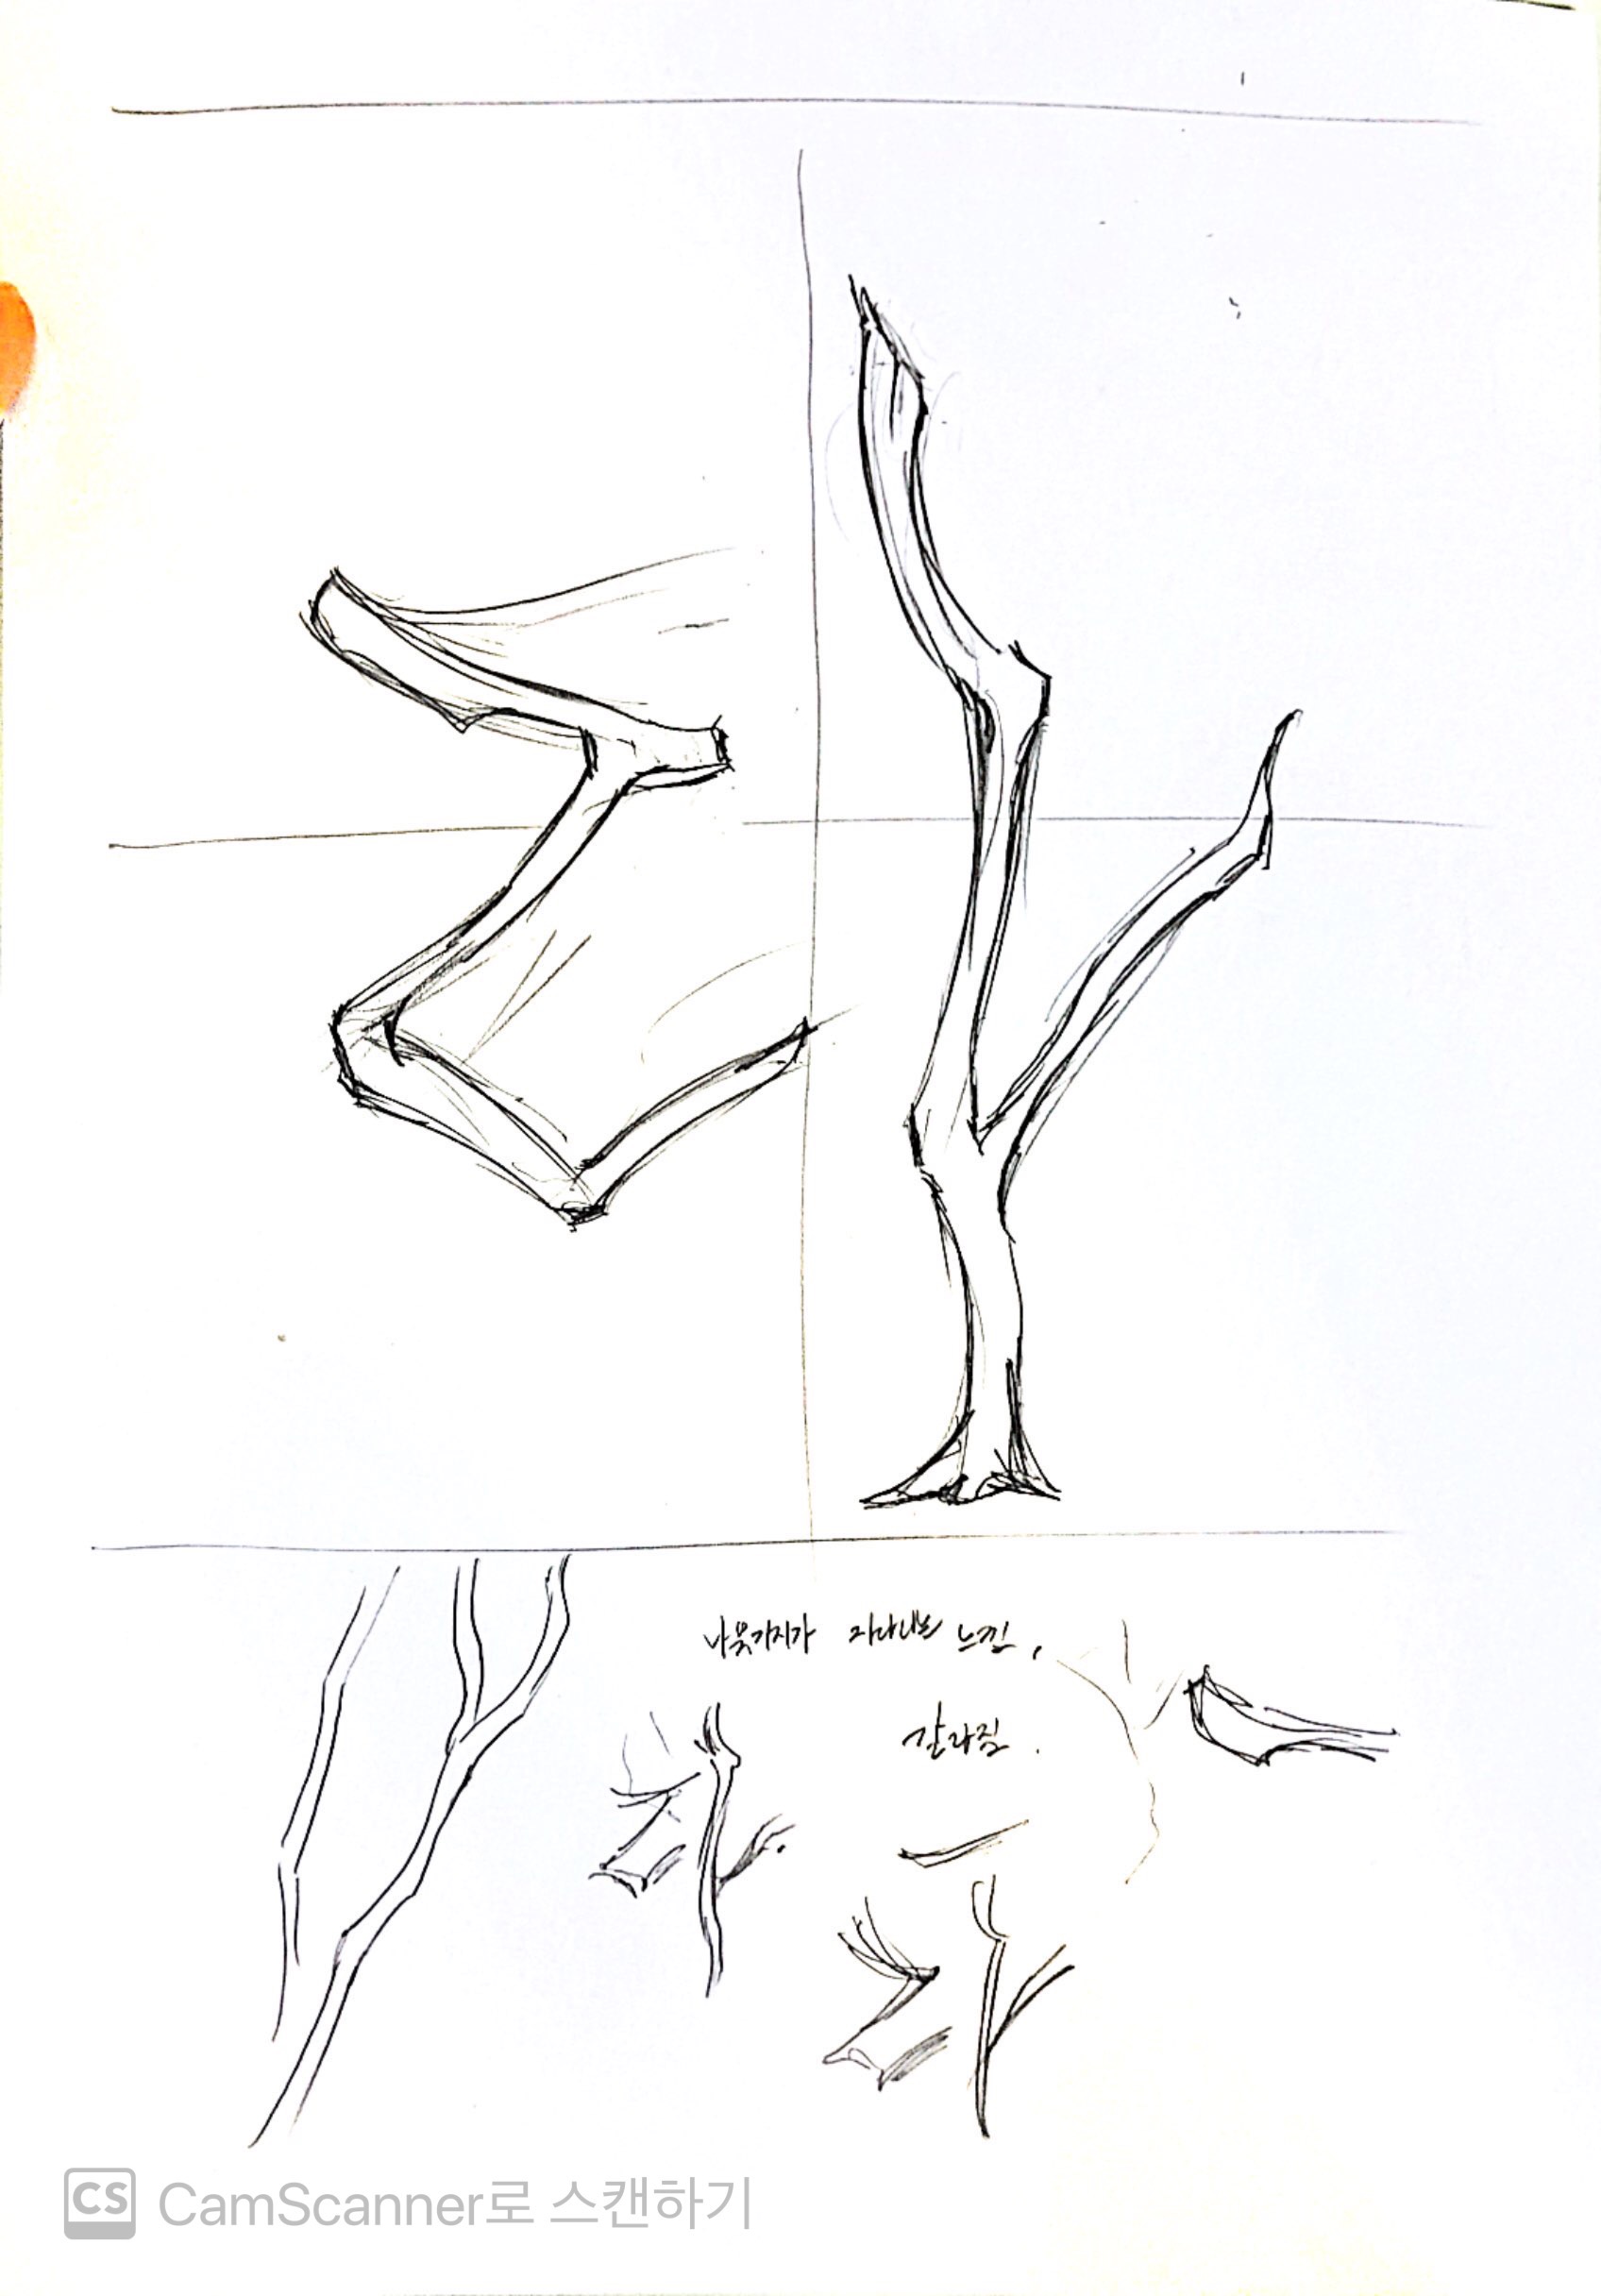 라
나뭇가지가 자라나는 느낌.
갈라짐.
CS CamScanner로 스캔하기